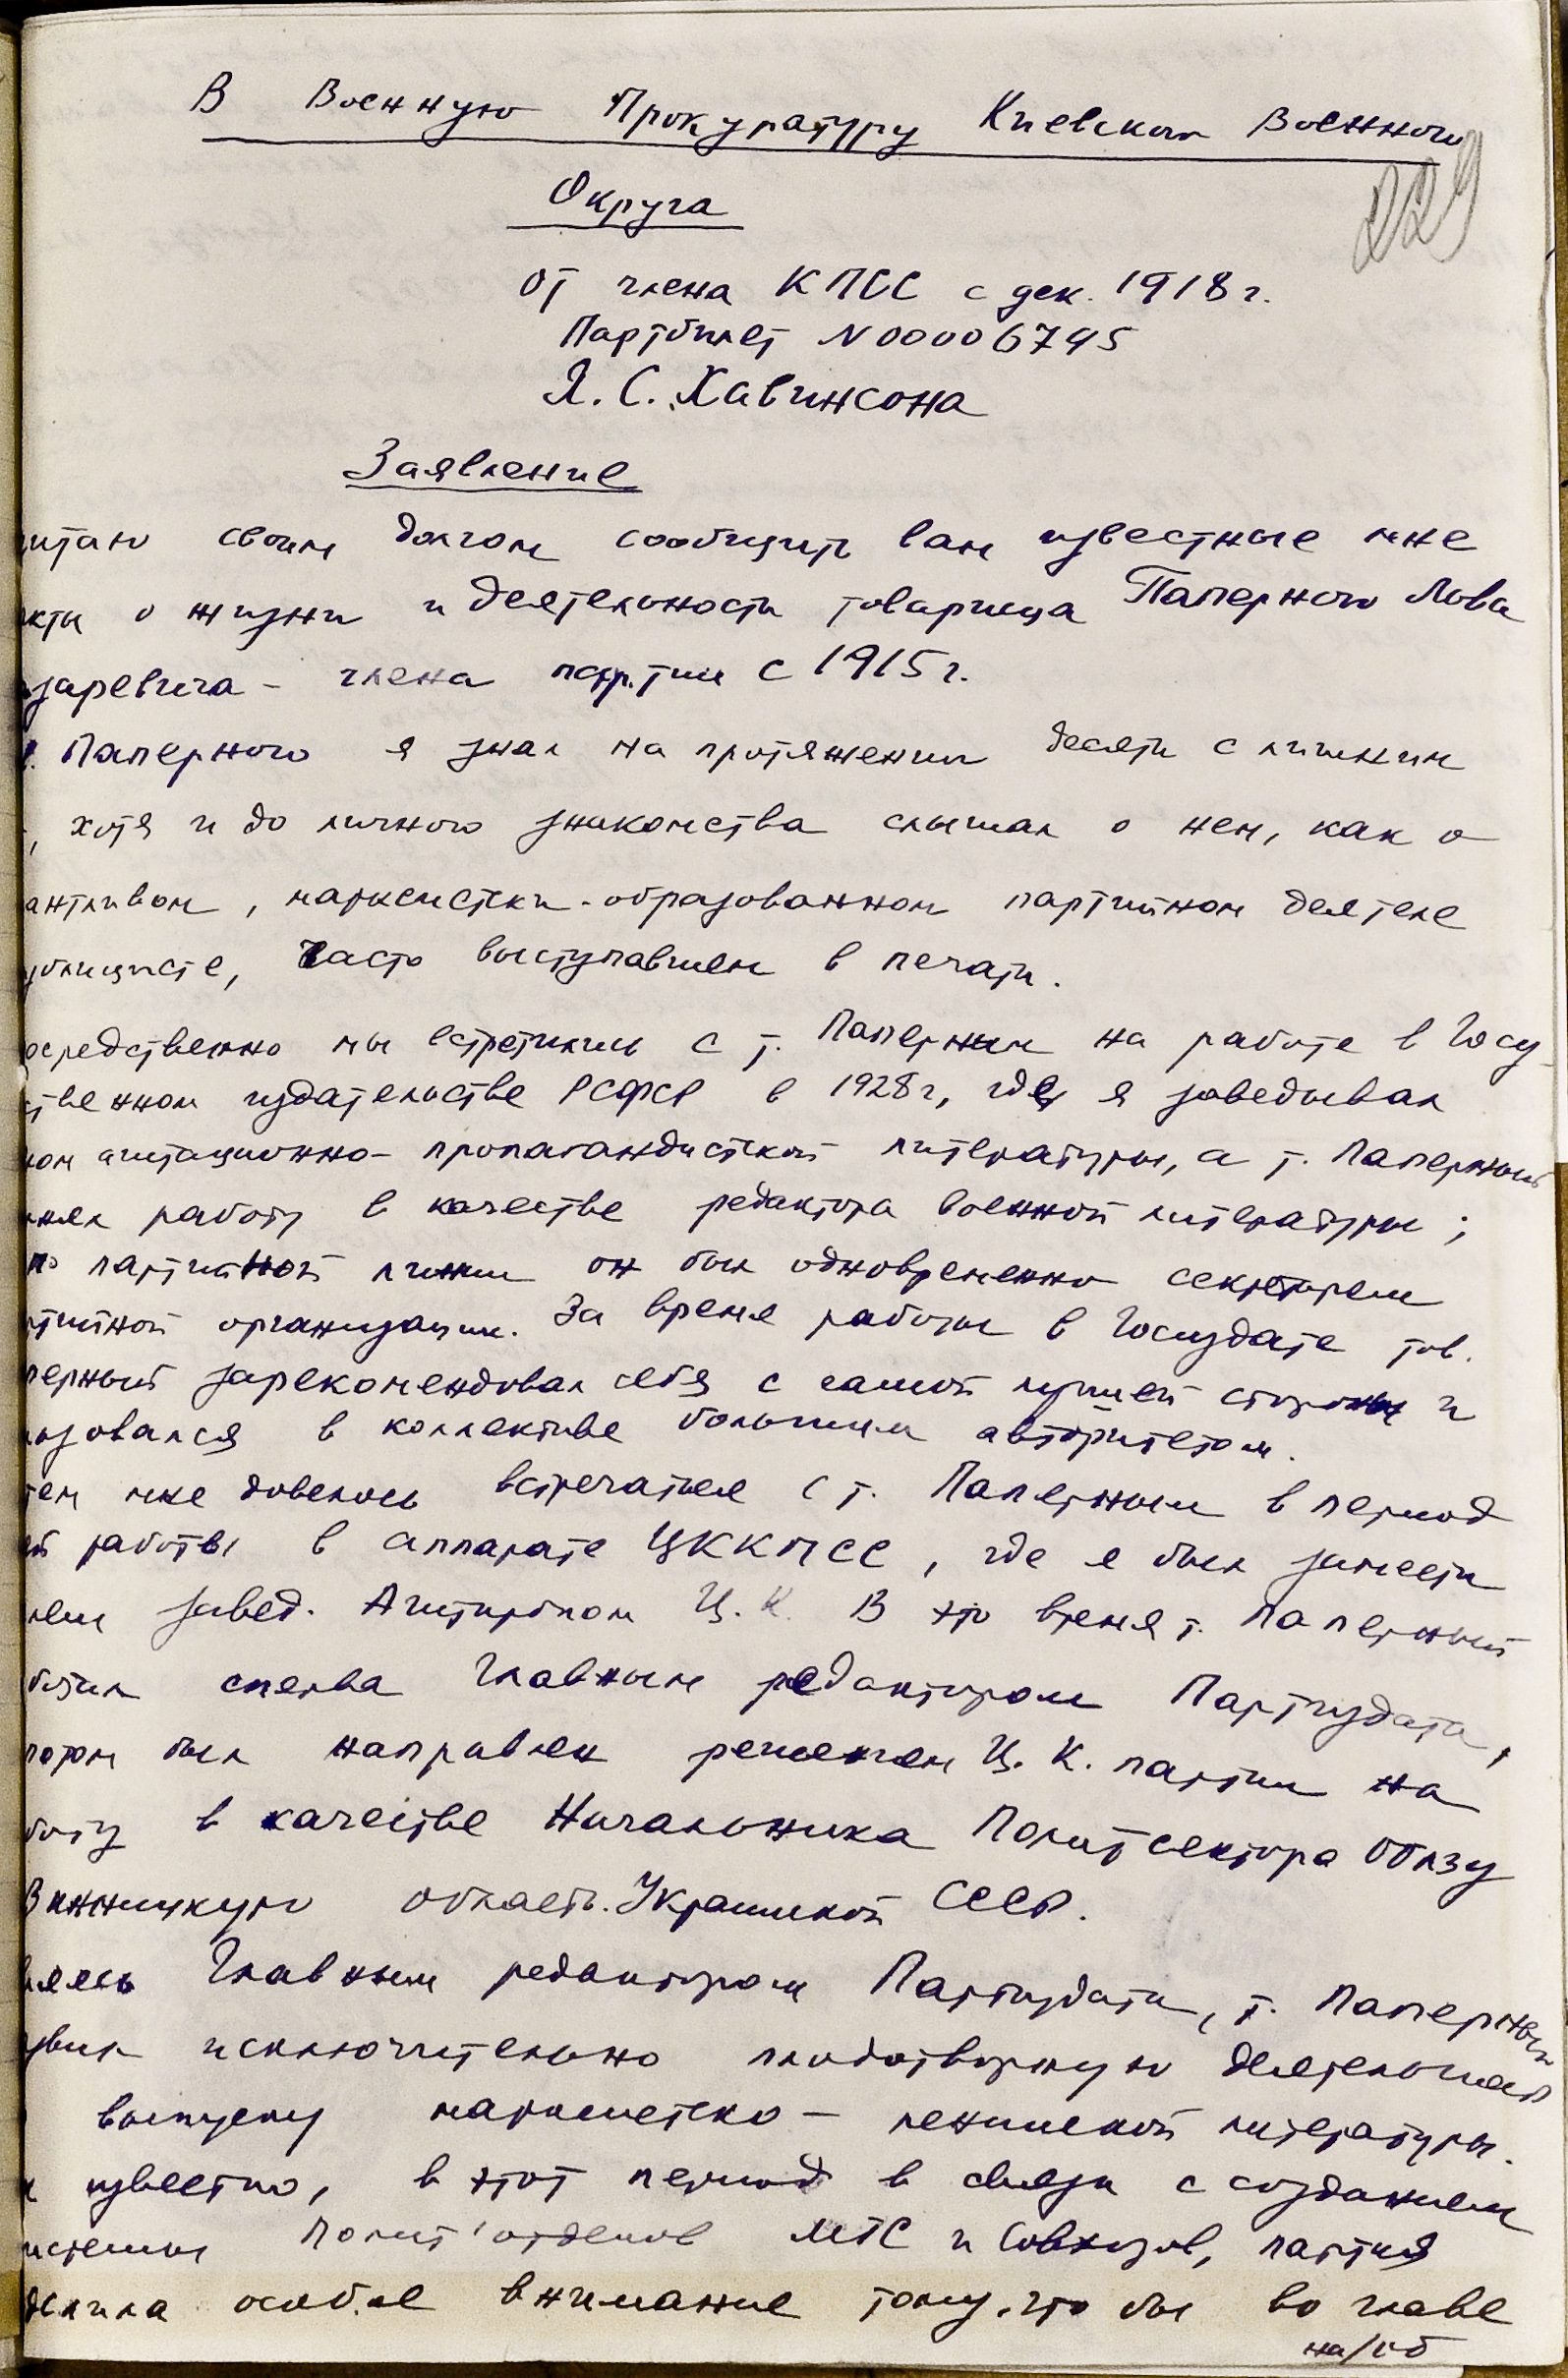 В Военную Прокуратуру Киевского Военного
Округа
229
От члена КПСС с дек. 1918 г.
Партбилет N 00006745
Я. С. Хавинсона
Заявление
читаю своим долгом сообщить вам известные мне
акты о жизни и деятельности товарища Паперного Лова
заревича - члена партии с 1915 г.
Паперного я знал на протяжении десяти с лишним
, хотя и до личного знакомства слышал о нем, как о
антливом, марксистски-образованном партийном деятеле
ублицисте, часто выступавшем в печати.
осредственно мы встретились с т. Паперным на работе в Госу-
ственном издательстве РСФСР в 1928 г, где я заведывал
лом агитационно-пропагандистской литературы, а т. Паперный
нял работу в качестве редактора военной литературы;
по партийной линии он был одновременно секретарем
ртийной организации. За время работы в Госиздате тов.
перный зарекомендовал себя с самой лучшей стороны и
ьзовался в коллективе большим авторитетом.
тем мне довелось встречаться с т. Паперным в период
ей работы в аппарате ЦККПСС, где я был замести
лем завед. Агитпропом Ц. К. В это время т. Паперный
ботал сперва Главным редактором Партиздата,
потом был направлен решением Ц. К. партии на
боту в качестве Начальника Политсектора ОблЗУ
Винницкую область. Украинской ССР.
вляясь Главным редактором Партиздата, т. Паперный
звил исключительно плодотворную деятельность
выпуску марксистско-ленинской литературы.
к известно, в этот период в связи с созданием
истемы Полит'отделов МТС и Совхозов, партия
делила особое внимание тому, что бы во главе
на/об